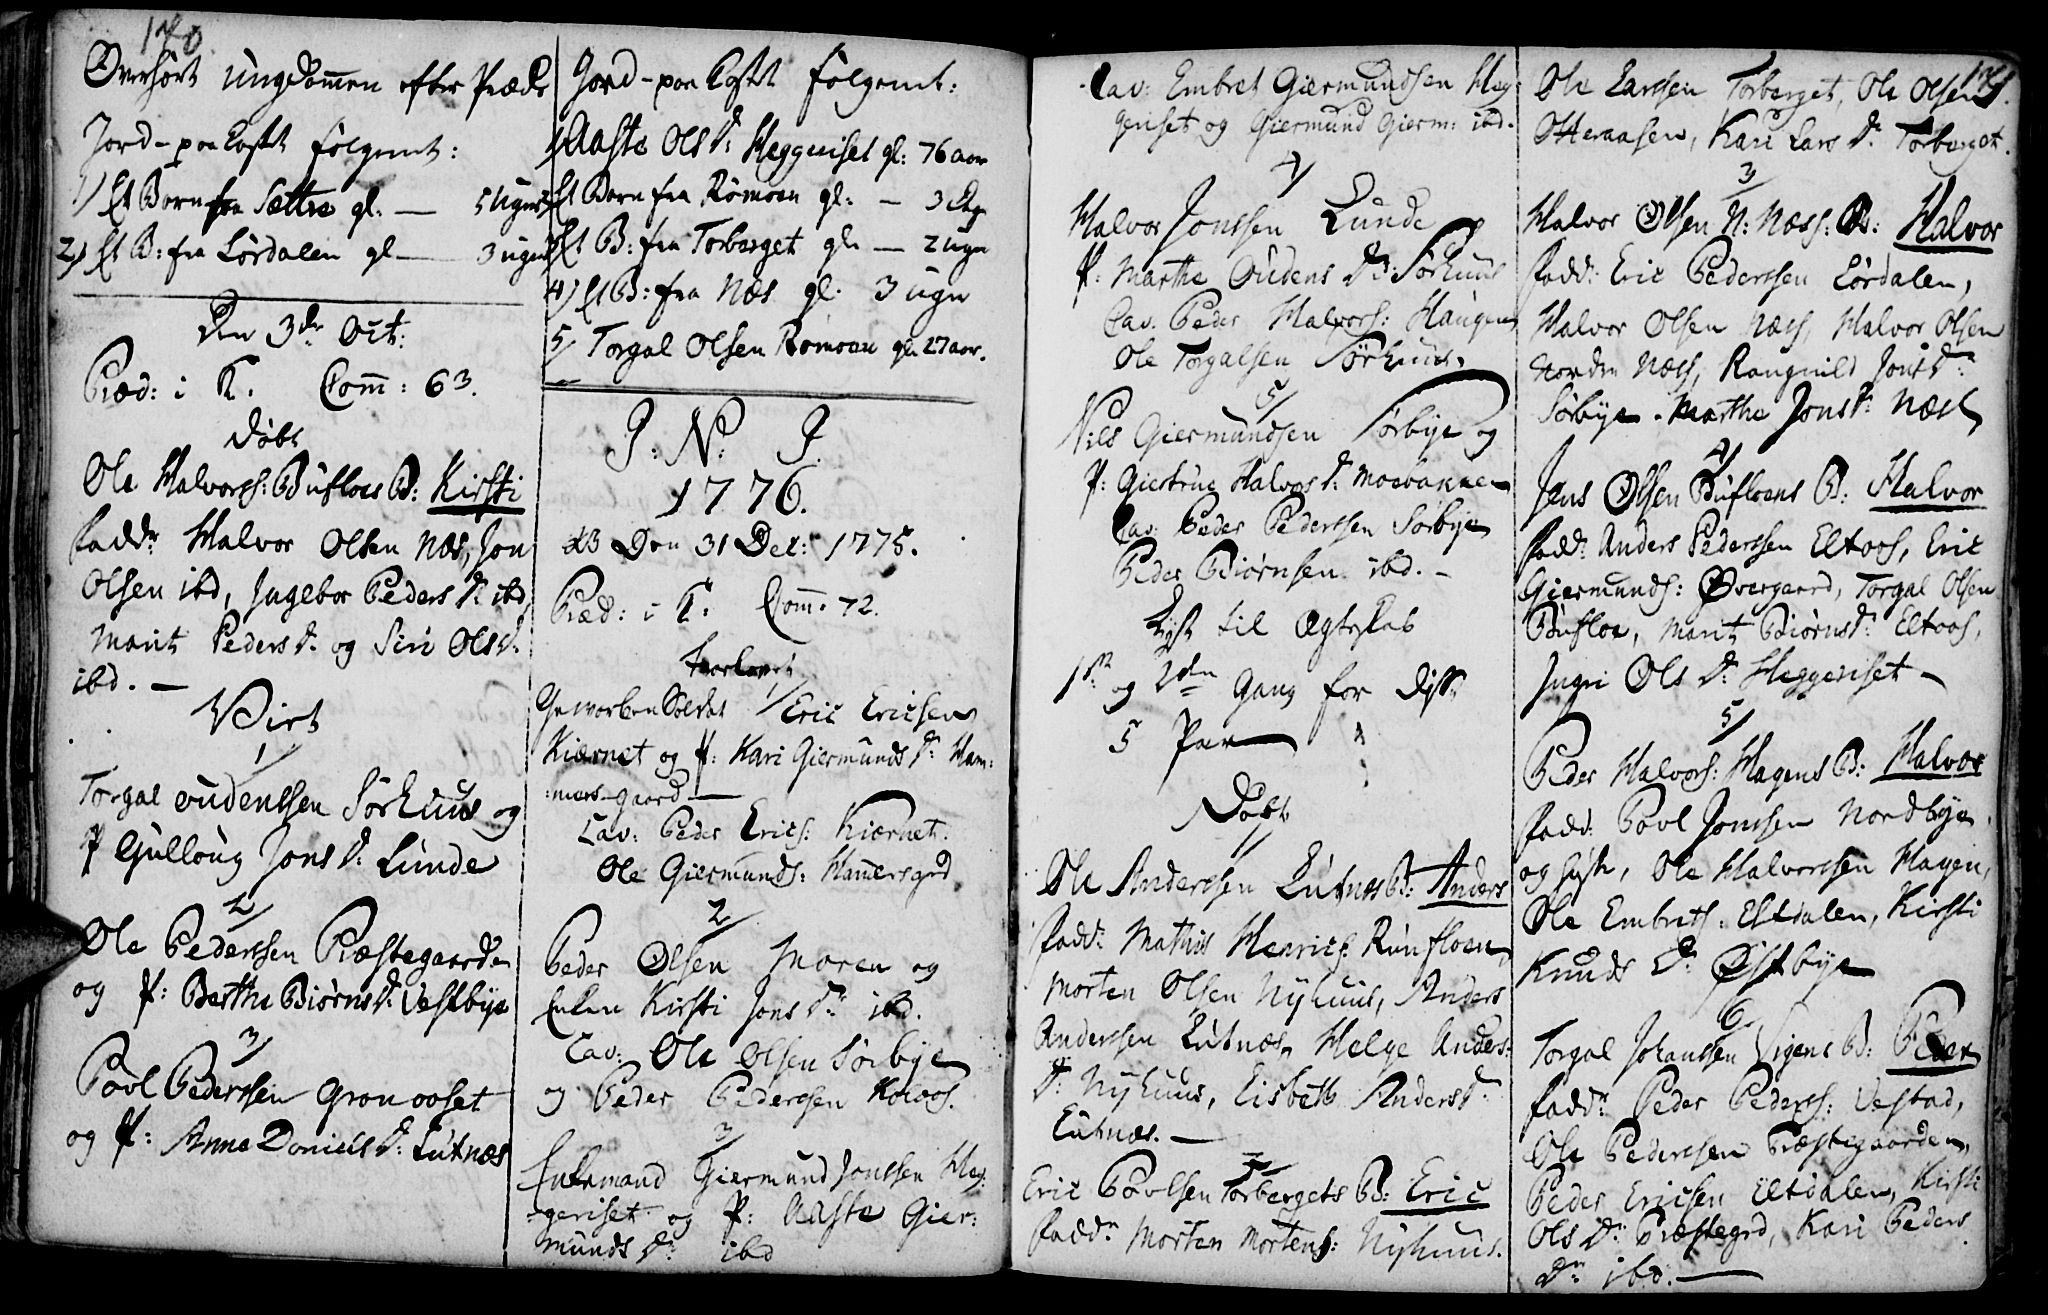 170.
Overhørt ungdommen efter Præd:
Jord-paa Kastet følgent:
1) Et Barn fra Sættre gl. — 5 Uger
2) Et B: fra Lørdalen gl — 3 uger
Den 3die Oct:
Præd: i K. Com̄: 63.
Døbt
Ole Halvorss: Bufloes B: Kirsti
fadd.r Halvor Olsen Næs, Jon
Olsen ibd, Ingebor Peders D. ibd,
Marit Peders D. og Siri Ols D.
ibd. —
Viet
1/
Torgal oudenssen Sørhuus og
P Gulloug Jons D. Lunde
2/
Ole Pederssen Præstegaarden
og P: Berthe Biørns D. Vestbye
3/
Povl Pederssen Gronoset
og P: Anne Daniels D: Lutnæs
Jord-paa Kastet følgent:
1/ Aaste Ols D. Heggeriset gl: 76 aar
2/ Et Barn fra Rømoen gl: — 3 Dage
3/ Et B: fra Torberget gl. — 2 ugr
4) Et B: fra Næs gl. 3 ugr
5/ Torgal Olsen Rømoen gl. 27 aar.
J: N: J.
1776.
Den 31 Dec: 1775.
Præd: i K. Com̄. 72.
Trolovet
Geworben Soldat 1/ Eric Ericsen
Kiærnet og P: Kari Giermunds D: Ham:
:mers-gaard —
Cav: Peder Erics: Kiærnet.
Ole Giermunds: Ham̄ersgrd
2/
Peder Olsen Moren og
Enken Kirsti Jons D. ibd.
Cav: Ole Olsen Sørbye
og Peder Pederssen Koloos.
3/
Enkemand Giermund Jonssen Heg:
-geriset og P: Aaste Gier:
munds D. ibd
Cav: Embret Giermundsen Heg:
geriset og Giermund Gierm: ibd.
4/
Halvor Jonssen Lunde
P: Marthe Oudens D: Sørhuus
Cav. Peder Halvors: Haugen
Ole Torgalsen Sørhuus.
5/
Nils Giermundsen Sørbye og
P: Giertrue Halvors D. Moebakken
Cav: Peder Pederssen Sørbye
Peder Biørnsen ibd. —
Lyst til Ægteskab
1ste og 2den Gang for disse
5 Par
Døbt
1/
Ole Anderssen Lutnæs B: Anders
fadd: Mathis Henrics: Runfloen,
Morten Olsen Nyhuus, Anders
Anderssen Lutnæs, Helge Anders:
D: Nyhuus, Lisbeth Anders D.
Lutnæs. —
2/
Eric Povlsen Torbergets B: Eric
fadd.r Morten Mortens: Nyhuus.
171.
Ole Larssen Torberget, Ole Olsen
Otteraasen, Kari Lars D. Torberget.
3/
Halvor Olsen N: Næss: B: Halvor
fadd: Eric Pederssen Lørdalen,
Halvor Olsen Næss, Halvor Olsen
Norden Næss, Rangnild Jons D.
Sørbye. Marthe Jons D. Næss
4/
Jens Olsen Bufloens B: Halvor
fadd: Anders Pederssen Eltoos, Eric
Giermunds: Øvergaard, Torgal Olsen
Bufloe, Marit Biørns D. Eltoos,
Ingri Ols D. Heggeriset —
5/
Peder Halvors: Hagens B: Halvor
fadd: Povl Jonssen Nordbye
og Hustr, Ole Halvorssen Hagen,
Ole Embrets: Eltdalen, Kirsti
Knuds D. Østbye
6.
Torgal Johanssen Vigens B: Peder
fadd.r Peder Pederss: Vestad,
Ole Pederssen Præstegaarden,
Peder Ericsen Eltdalen, Kirsti
Ols D. Præstegrd, Kari Peders
D.r ibd. —